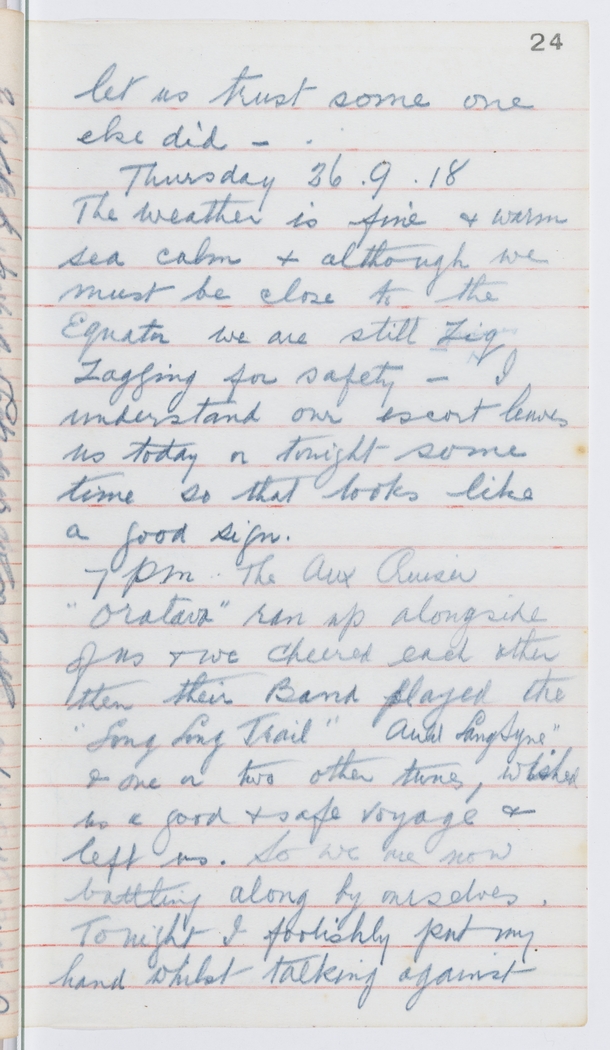 24
let us trust some one
else did -
Thursday 26.9.18
The weather is fine & warm
sea calm & although we
must be close to the
Equator we are still Zig
Zagging for safety - I
understand our escort leaves
us today or tonight some
time so that looks like
a good sign.
7 pm. The Aux Cruiser
"Oratava" ran up alongside
of us & we cheered each other
then their Band played the
"Long Long Trail" Auld Lang Syne"
& one or two other tunes, wished
us a good & safe voyage &
left us. So we are now
battling along by ourselves.
Tonight I foolishly put my
hand whilst talking against